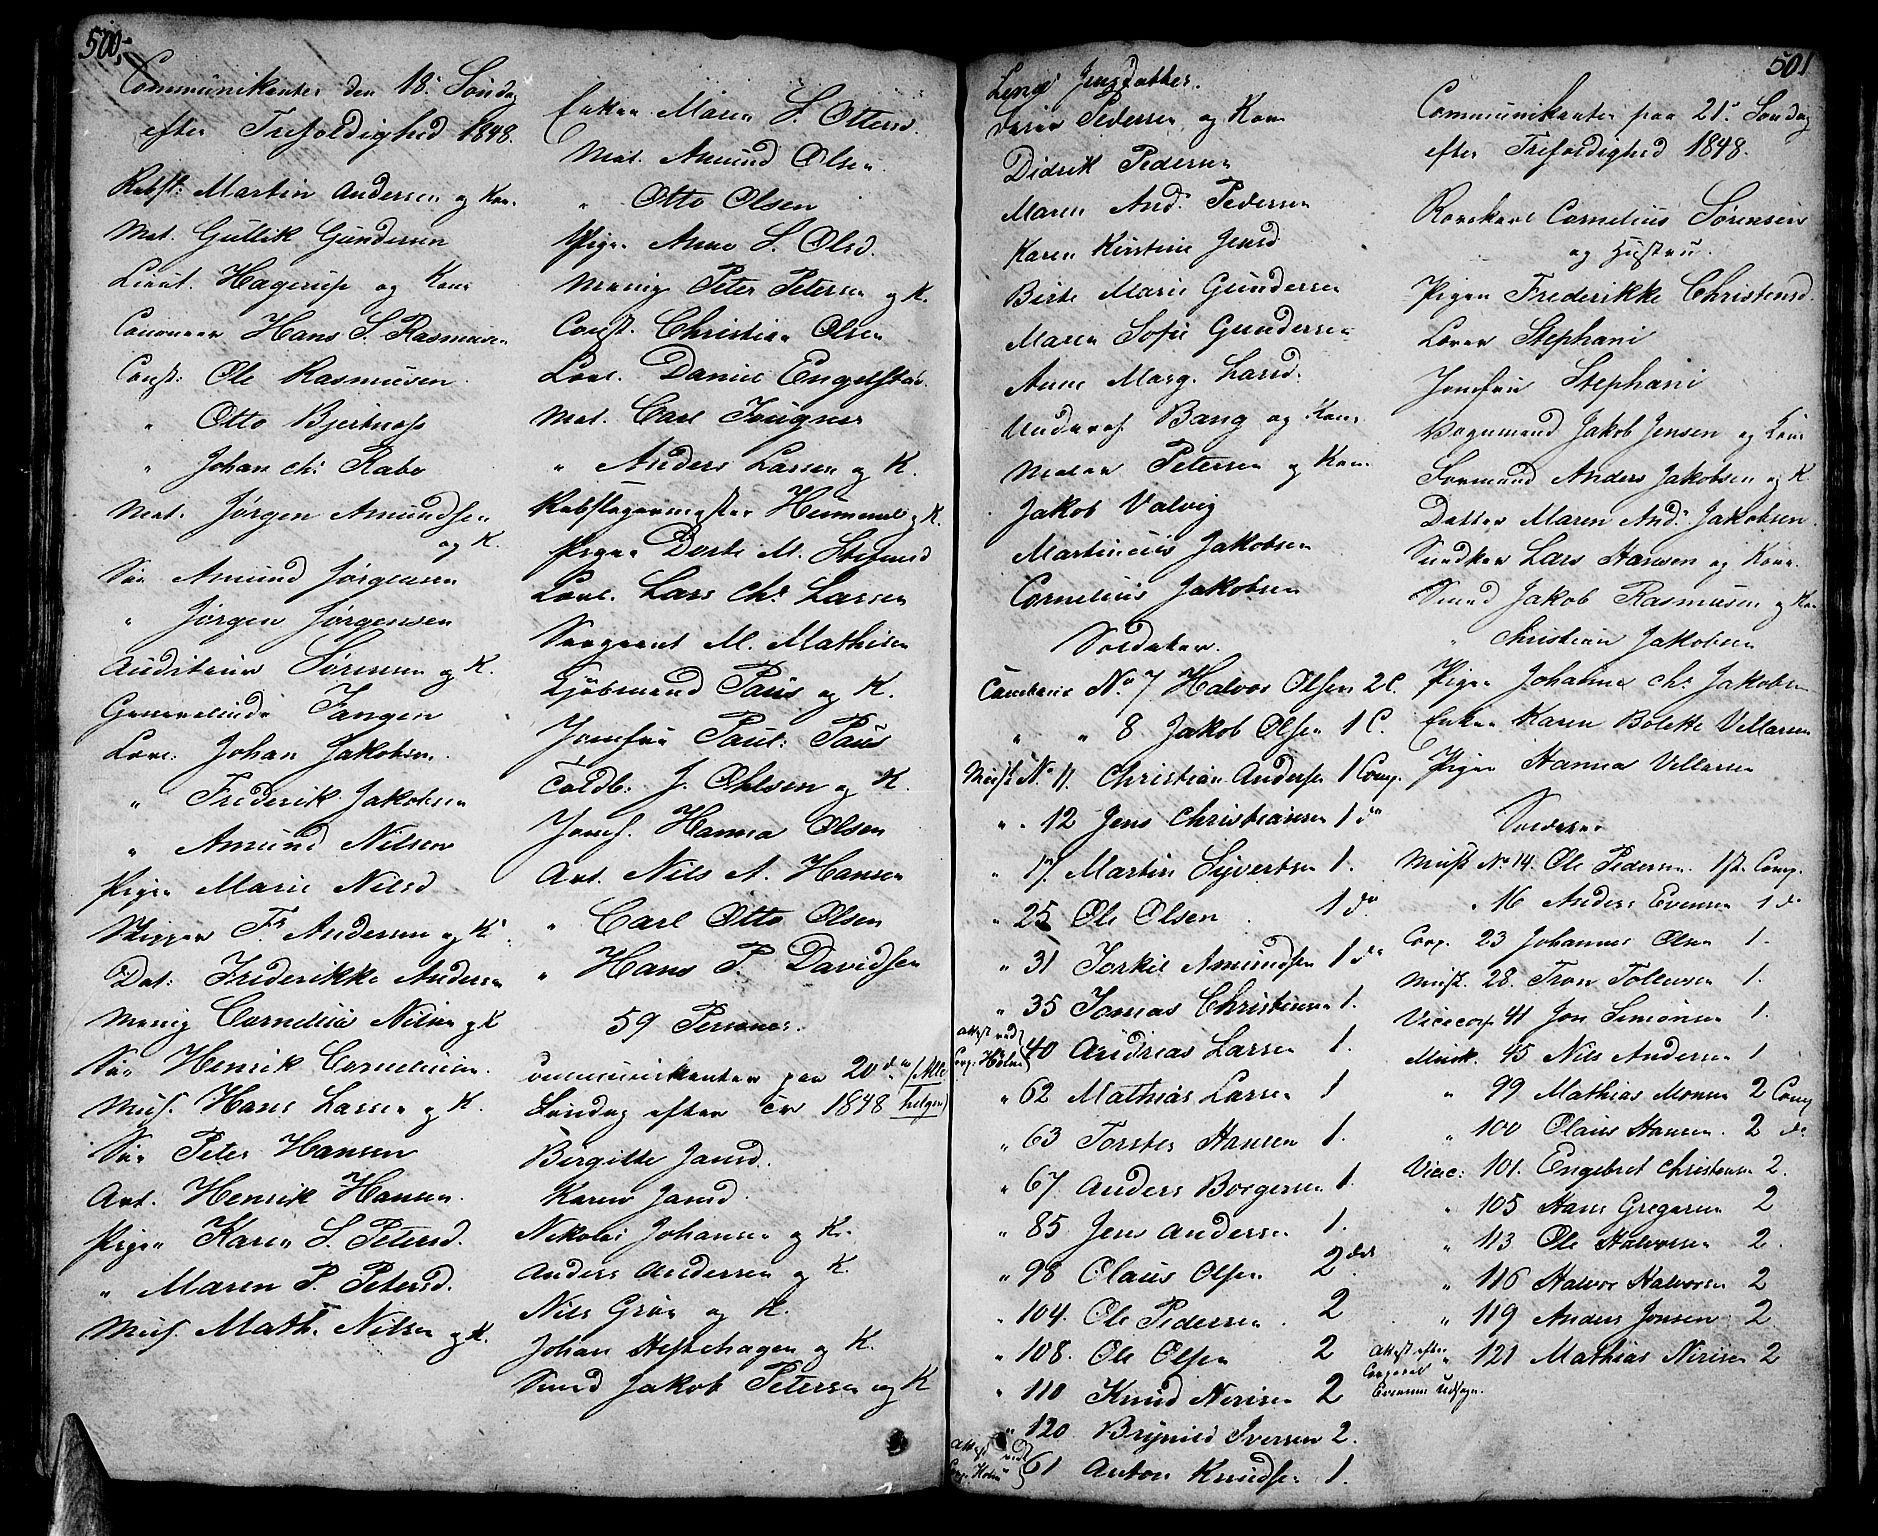 500,
Communikanter den 18. Søndag
efter Trefoldighed 1848.
Rebsl: Martin Andersen og Kone
Mat. Gullik Gundersen
Lieut. Hagerup og Kone
Canoneer Hans S. Rasmusen
Const: Ole Rasmusen
" Otto Bjertnæs
" Johan Chr Rabe
Mat. Jørgen Amundsen
og K.
Søn Amund Jørgensen
" Jørgen Jørgensen
Auditeur Sørensen og K.
Generalinde Fangen
Lovl: Johan Jakobsen
" Frederik Jakobsen
" Amund Nilsen
Pigen Marie Nilsd
Skipper Fr Andersen og K.
Dat: Frederikke Andersen
Menig Cornelius Nilsen og K
Søn Henrik Corneliusen
Mus. Hans Larsen og K.
Søn Peter Hansen
Art. Henrik Hansen
Pigen Karen S. Petersd.
" Maren P. Petersd.
Mus. Math. Nilsen og K.
Enken Maren S. Ottersd.
Mat. Amund Olsen
" Otto Olsen
Pigen Anne S. Olsd.
Menig Peter Petersen og K.
Const. Christian Olsen
Lovl. Daniel Engelstad
Mat. Carl
" Anders Larsen og K.
Rebslagermester Hummel og K.
Pigen Dorte M.
Lovl. Lars Chr Larsen
Sergeant M. Mathisen
Kjøbmand Paus og K.
Jomfru Paul: Paus
Toldb: J. Ohlsen og K.
Jomf. Hanna Olsen
Art. Nils A. Hansen
" Carl Otto Olsen
" Hans P. Davidsen
59 Personer.
Communikanter paa 20de (Alle
Søndag efter Tr 1848 helgen)
Birgitte Jansd.
Karen Jansd.
Nikolai Johansen og K.
Anders Andersen og K.
Nils Grøn og K.
Johan Hestehagen og K.
Smed Jakob Petersen og K
501
Lene Jensdatter.
Pedersen og Kone
Didrik Pedersen
Maren And. Pedersen
Karen Kirstine Jensd
Birte Marie Gundersen
Maren Sofie Gundersen
Anne Marg. Larsd.
Underof. Bang og Kone
Maler Petersen og Kone
Jakob Valvig
Martinius Jakobsen
Cornelius Jakobsen
Soldater.
No 7 Halvor Olsen 2 C.
" " 8 Jakob Olsen 1 C.
Musk No 11. Christian Andersen 1 Comp.
" " 12 Jens Christiansen 1 do
" 17. Martin Syvertsen 1.
" 25 Ole Olsen 1 do
" 31 Torkil Amundsen 1 do
" 35 Tomas Christiansen 1.
Attest ved
Corp. Holm
40 Andreas Larsen 1.
" 62 Mathias Larsen 1
" 63 Torsten Hansen 1.
" 67. Anders Borgersen 1.
" 85 Jens Andersen 1.
" 98 Olaus Olsen 2det
" 104. Ole Pedersen 2
" 108. Ole Olsen 2
" 110 Knud Nirisen 2
" 120 Brynild Iversen 2.
Attest ved
Corp. Holm
61 Anton Knudsen 1.
Communikanter paa 21. Søndag
efter Trefoldighed 1848.
Rorskarl Cornelius Sørensen
og Hustru.
Pigen Frederikke Christensd.
Lærer Stephani
Jomfru Stephani
Vognmand Jakob Jensen og Kone
Formand Anders Jakobsen og K.
Datter Maren And. Jakobsen.
Snedker Lars Hansen og Kone.
Smed Jakob Rasmusen og Kone
" Christian Jakobsen
Pigen Johanne Chr Jakobsen
Enken Karen Bolette Villarsen
Pigen Hanna Villarsen
Soldater
Musk No 14. Ole Pedersen 1st. Comp.
" 16 Anders Evensen 1 do
Corp. 23 Johannes Olsen 1.
Musk. 28. Tron Tollevsen 1.
Vicecorp. 41 Jon Simonsen 1.
Musk. 45 Nils Andersen 1
" 99 Mathias Monsen 2 Comp
" 100 Olaus Hansen. 2 do
Vicec: 101. Engebret Christensen 2.
" 105 Hans Gregersen 2
" 113 Ole Halvorsen 2.
" 116 Halvor Halvorsen 2
" 119 Anders Jonsen 2.
Attest efter
Corporal
Evensens Udsagn.
" 121 Mathias Nirisen 2